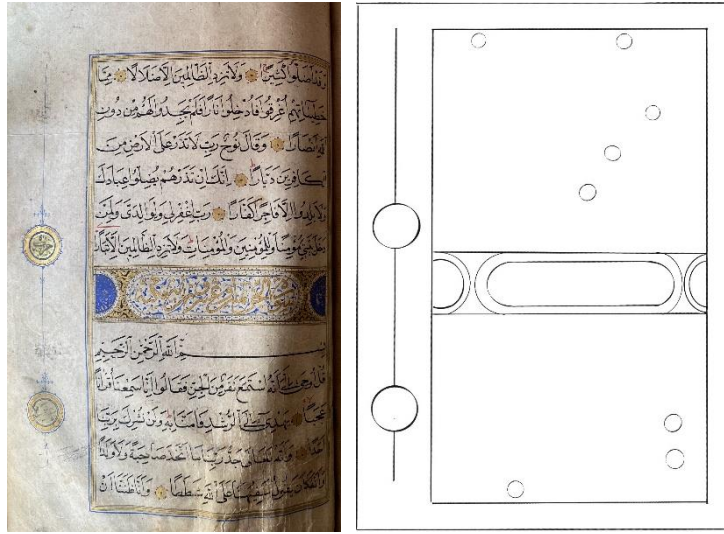 وَقَدْ اَضَلُّوا كَثِيرًا وَلَا تَزِدِ الظَّالِمِينَ اِلَّا ضَلَالًا مِمَّا
خَطِيئَاتِهِمْ اُغْرِقُوا فَاُدْخِلُوا نَارًا فَلَمْ يَجِدُوا لَهُمْ مِنْ دُونِ
اللّٰهِ اَنْصَارًا وَقَالَ نُوحٌ رَبِّ لَا تَذَرْ عَلَى الْاَرْضِ مِنَ
الْكَافِرِينَ دَيَّارًا اِنَّكَ اِنْ تَذَرْهُمْ يُضِلُّوا عِبَادَكَ
وَلَا يَلِدُوا اِلَّا فَاجِرًا كَفَّارًا رَبِّ اغْفِرْ لِي وَلِوَالِدَيَّ وَلِمَنْ
دَخَلَ بَيْتِيَ مُؤْمِنًا وَلِلْمُؤْمِنِينَ وَالْمُؤْمِنَاتِ وَلَا تَزِدِ الظَّالِمِينَ اِلَّا تَبَارًا
سورة الجن
بِسْمِ اللّٰهِ الرَّحْمٰنِ الرَّحِيمِ
قُلْ اُوحِيَ اِلَيَّ اَنَّهُ اسْتَمَعَ نَفَرٌ مِنَ الْجِنِّ فَقَالُوا اِنَّا سَمِعْنَا قُرْاٰنًا
عَجَبًا يَهْدِي اِلَى الرُّشْدِ فَاٰمَنَّا بِهِ وَلَنْ نُشْرِكَ بِرَبِّنَا
اَحَدًا وَاَنَّهُ تَعَالَى جَدُّ رَبِّنَا مَا اتَّخَذَ صَاحِبَةً وَلَا وَلَدًا
وَاَنَّهُ كَانَ يَقُولُ سَفِيهُنَا عَلَى اللّٰهِ شَطَطًا وَاَنَّا ظَنَنَّا اَنْ